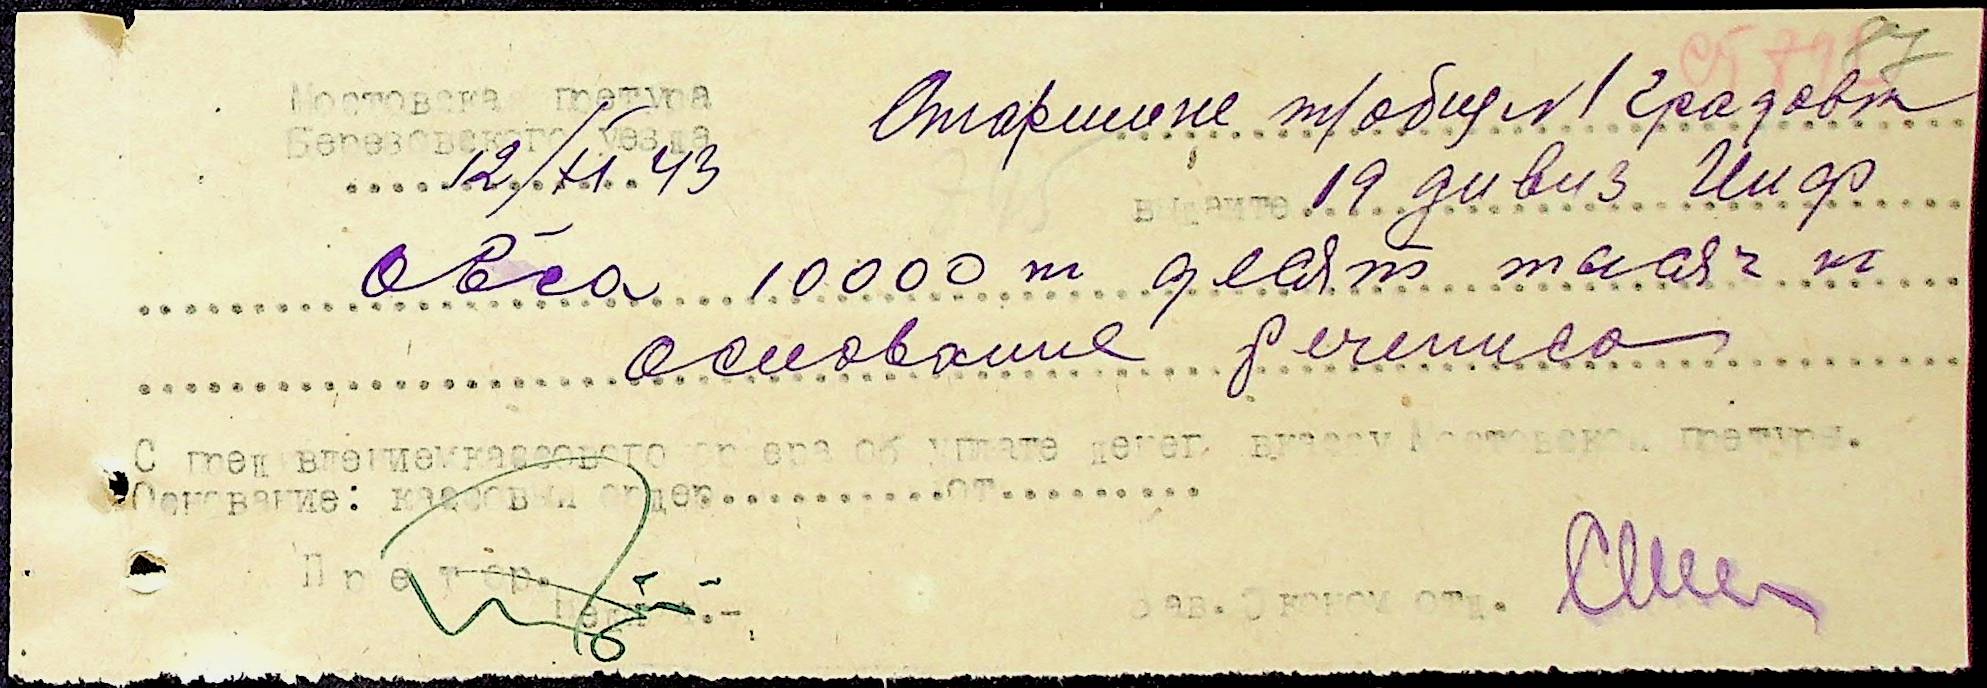 87
Мостовска претура
Березовского уезда
12/XI 43
Старшине т/общ №1 Градовк
выдайте 19 дивиз Инф
овса 10000 т десят тысяч кг
основание
С пред влением кассового ордера об уплате денег вкассу Мостовской претуры.
Основание: кассовый ордер...........от..........
Претор.
Зав. Эконом отд.